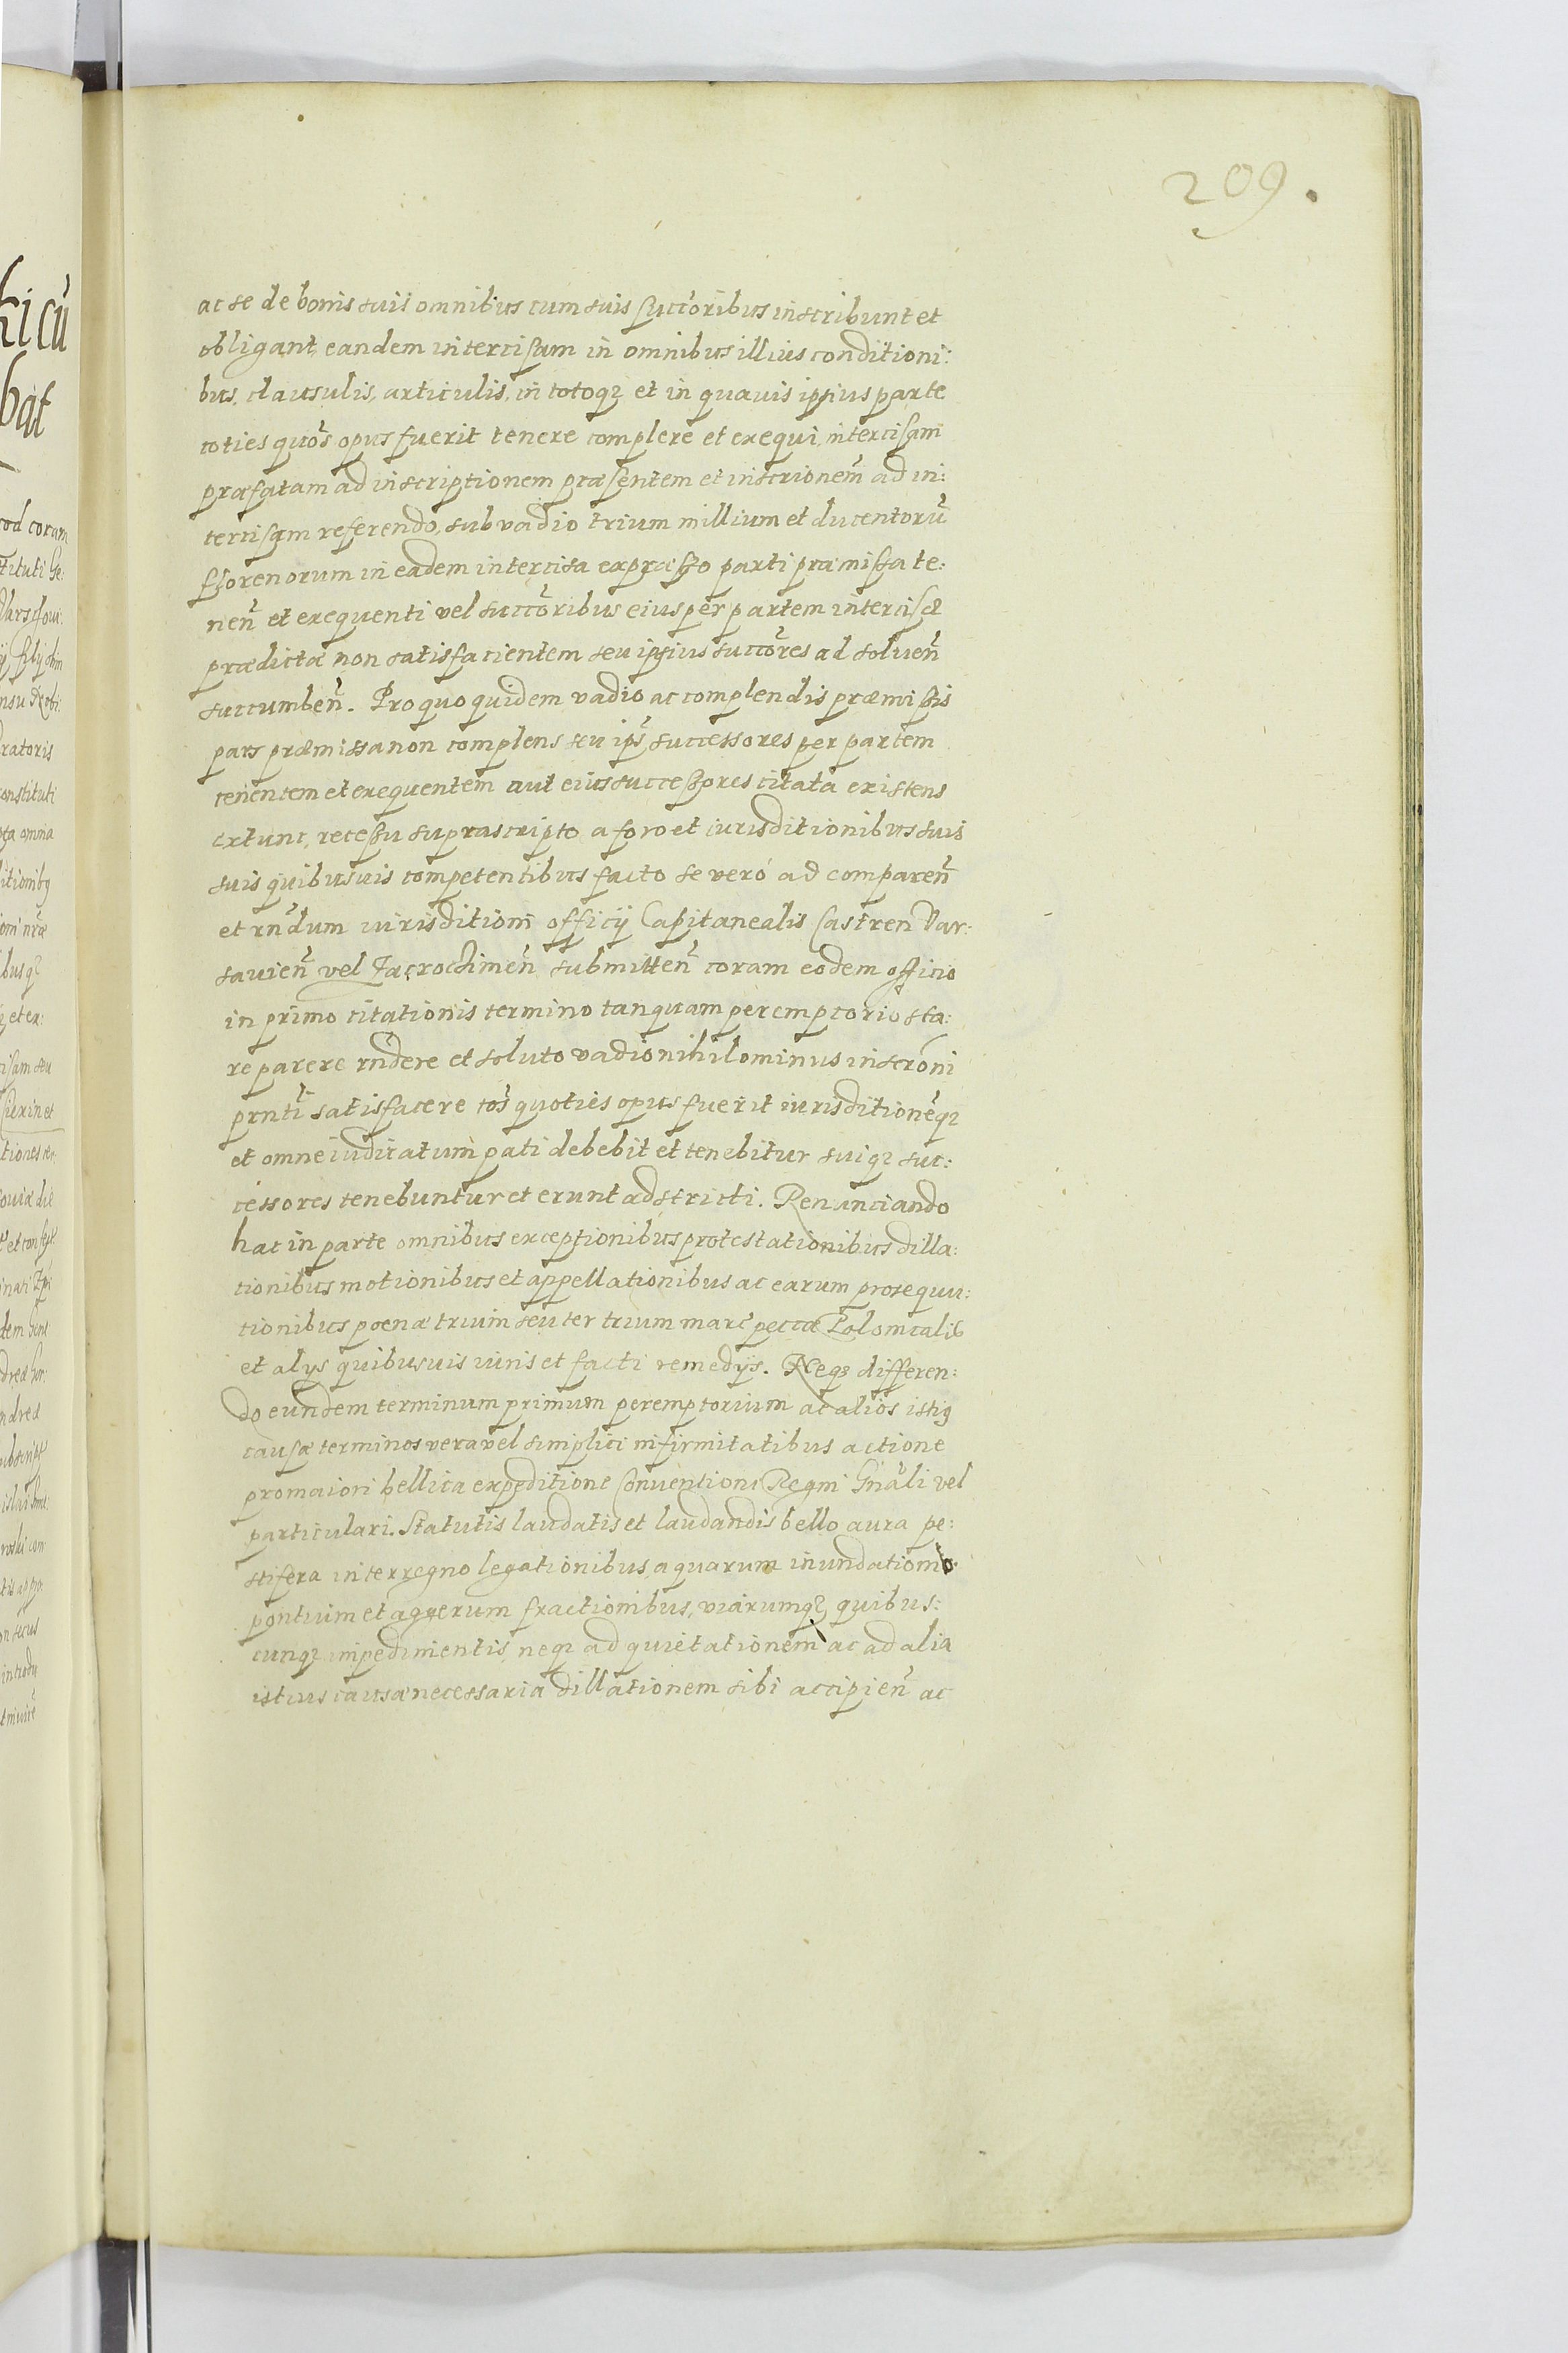 209.
ac se de bonis suis omnibus cum suis succ̃oribus inscribunt et
obligant, eandem intercisam in omnibus illius conditioni:
bus, clausulis, articulis, in totoq3 et in quauis ipsius parte
toties quõs opus fuerit tenere complere et exequi, intercisam
præfatam ad inscriptionem præsentem et inscrionem̃ ad in:
tercisam referendo, sub vadio trium millium et ducentorũ
florenorum in eadem intercisa expresso parti præmissa te:
nen̄ et exequenti vel succõribus eius per partem intercisæ
prædictæ non satisfacientem seu ipsius succõres ad soluen̄
succumben̄. Pro quo quidem vadio ac complendis præmissis
pars præmissa non complens seu ips̃ successores per partem
tenentem et exequentem aut eius successores citata existens
extunc, recessu suprascripto a foro et iurisditionibus suis
suis quibusuis competentibus facto se verò ad comparen̄
et rñdum iurisditioni officij Capitanealis Castren̄ Var:
sauien̄ vel Zacrochimen̄ submitten̄ coram eodem officio
in primo citationis termino tanquam peremptorio sta:
re parere rñdere et soluto vadio nihilominus inscrõni
prñti satisfacere tos̃ quoties opus fuerit iurisditionẽq3
et omne iudicatum pati debebit et tenebitur suiq3 suc:
cessores tenebuntur et erunt adstricti. Renunciando
hac in parte omnibus exceptionibus protestationibus dilla:
tionibus motionibus et appellationibus ac earum prosequu:
tionibus poenæ trium seu ter trium marc̃ peccæ Polonicalis
et alijs quibusuis iuris et facti remedijs. Neq3 differen:
do eundem terminum primum peremptorium ac alios istiq
causæ terminos vera vel simplici infirmitatibus actione
pro maiori bellica expeditione Conuentione Regni Gnãli vel
particulari. Statutis laudatis et laudandis bello aura pe:
stifera interregno legationibus, aquarum inundationib.
pontium et aggerum fractionibus, viarumq3 quibus:
cunq3 impedimentis, neq3 ad quietationem ac ad alia
istius causæ necessaria dillationem sibi accipien̄ ac